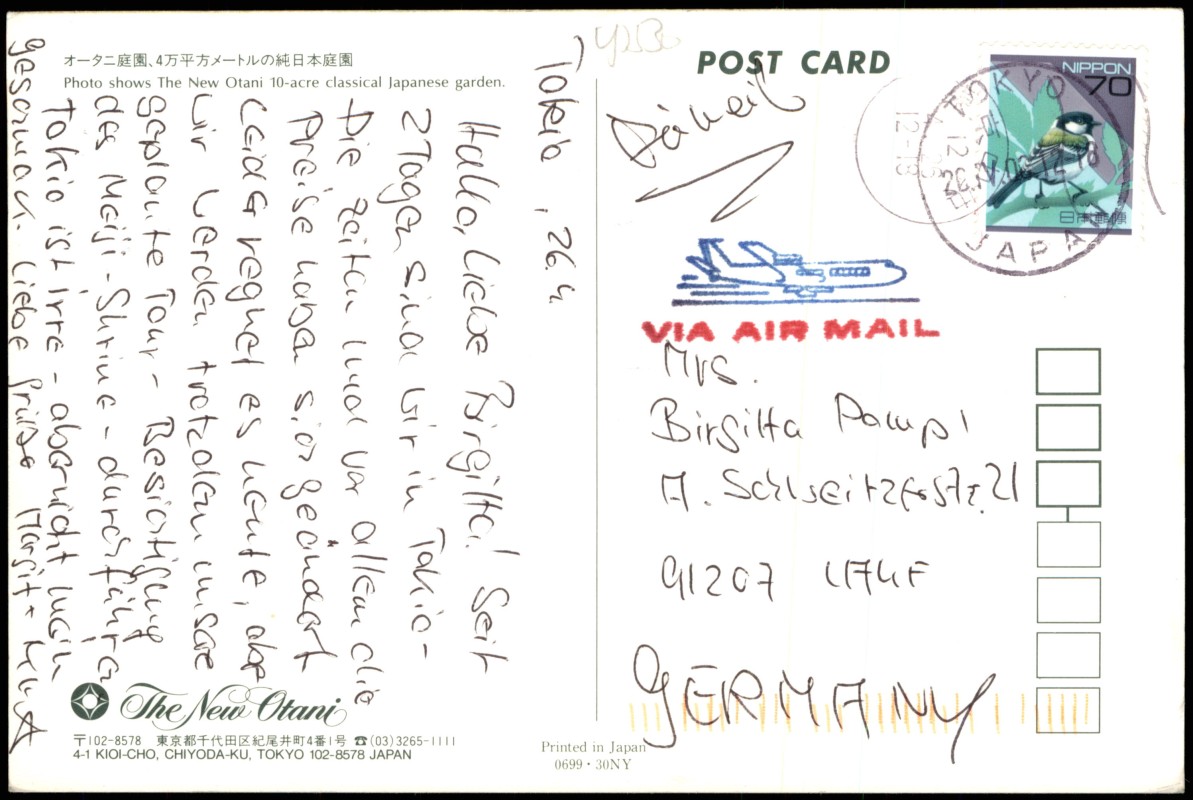 オータニ庭園、4万平方メートルの純日本庭園
Photo shows The New Otani 10-acre classical Japanese garden.
Tokio, 26.4
Hallo, liebe Birgitta! Seit
2 Tagen sind wir in Tokio -
Die Zeiten und vor allem die
Preise haben sich geändert
Leider regnet es heute, aber
wir werden trotzdem unsere
geplante Tour - Besichtigung
des Meiji - Shrine - durchführen
Tokio ist irre - aber nicht mein
Geschmack. Liebe Grüße Margit + Kurt
The New Otani
〒102-8578 東京都千代田区紀尾井町4番1号 ☎(03)3265-1111
4-1 KIOI-CHO, CHIYODA-KU, TOKYO 102-8578 JAPAN
Printed in Japan
0699・30NY
POST CARD
NIPPON
70
日本郵便
TOKYO
JAPAN
12-18
VIA AIR MAIL
Mrs.
Birgitta Pampl
A. Schweitzerstr. 21
91207 LAUF
GERMANY